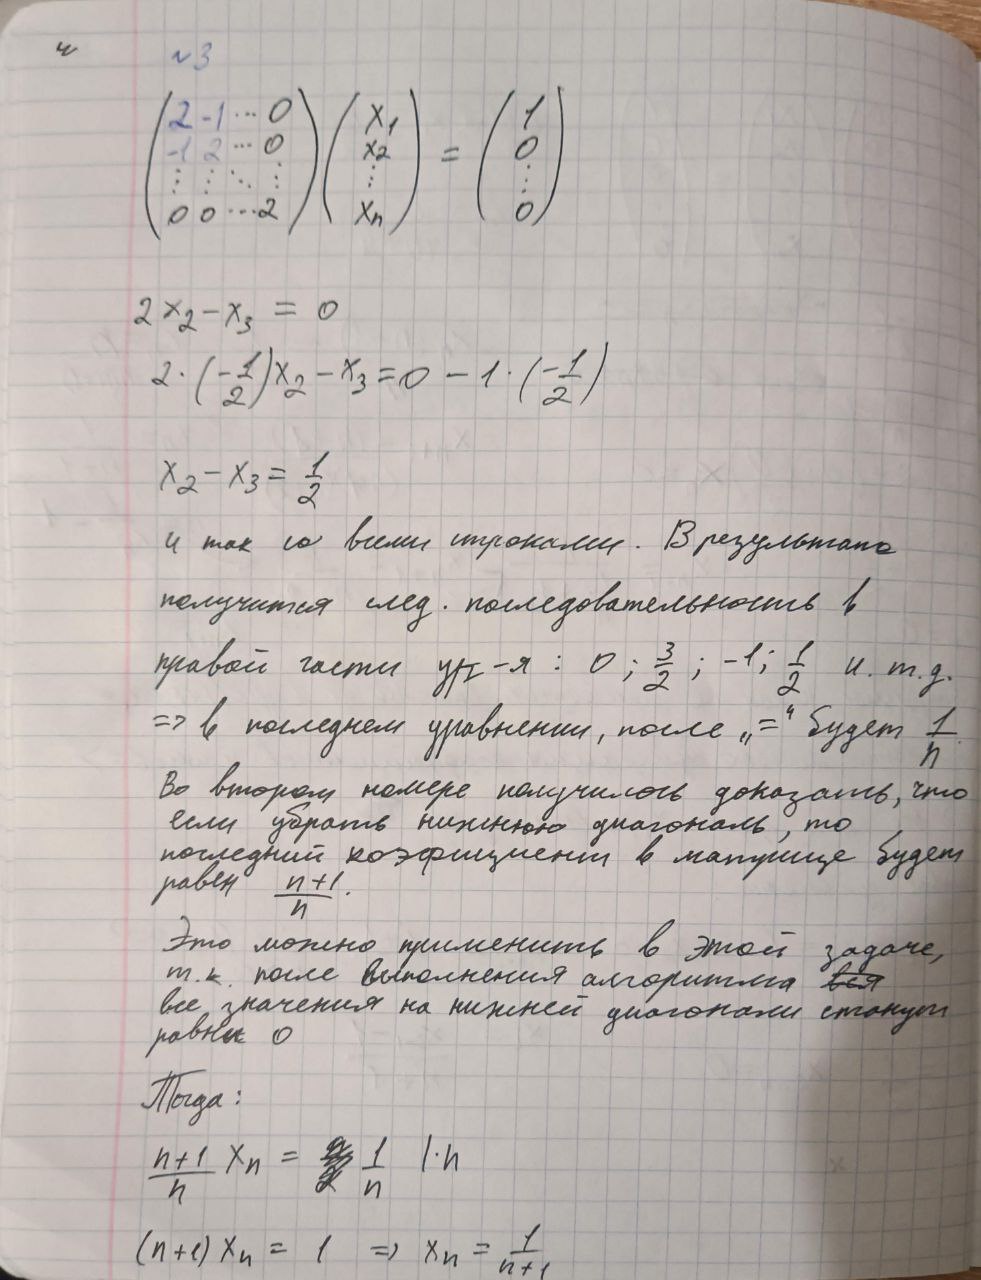 ч
№3
(2 -1 ... 0) (x₁) = (1)
(-1 2 ... 0) (x₂) (0)
(⋮ ⋮ ⋱ ⋮) (⋮) (⋮)
(0 0 ... 2) (xₙ) (0)
2x₂ - x₃ = 0
2·(-1/2)x₂ - x₃ = 0 - 1·(-1/2)
x₂ - x₃ = 1/2
и так со всеми строками. В результате
получится след. последовательность в
правой части ур-я: 0; 3/2; -1; 1/2 и т.д.
=> в последнем уравнении, после „=“ будет 1/n
Во втором номере получилось доказать, что
если убрать нижнюю диагональ, то
последний коэффициент в матрице будет
равен (n+1)/n.
Это можно применить в этой задаче,
т.к. после выполнения алгоритма
все значения на нижней диагонали станут
равны 0
Тогда:
(n+1)/n xₙ = 1/n |·n
(n+1) xₙ = 1 => xₙ = 1/(n+1)